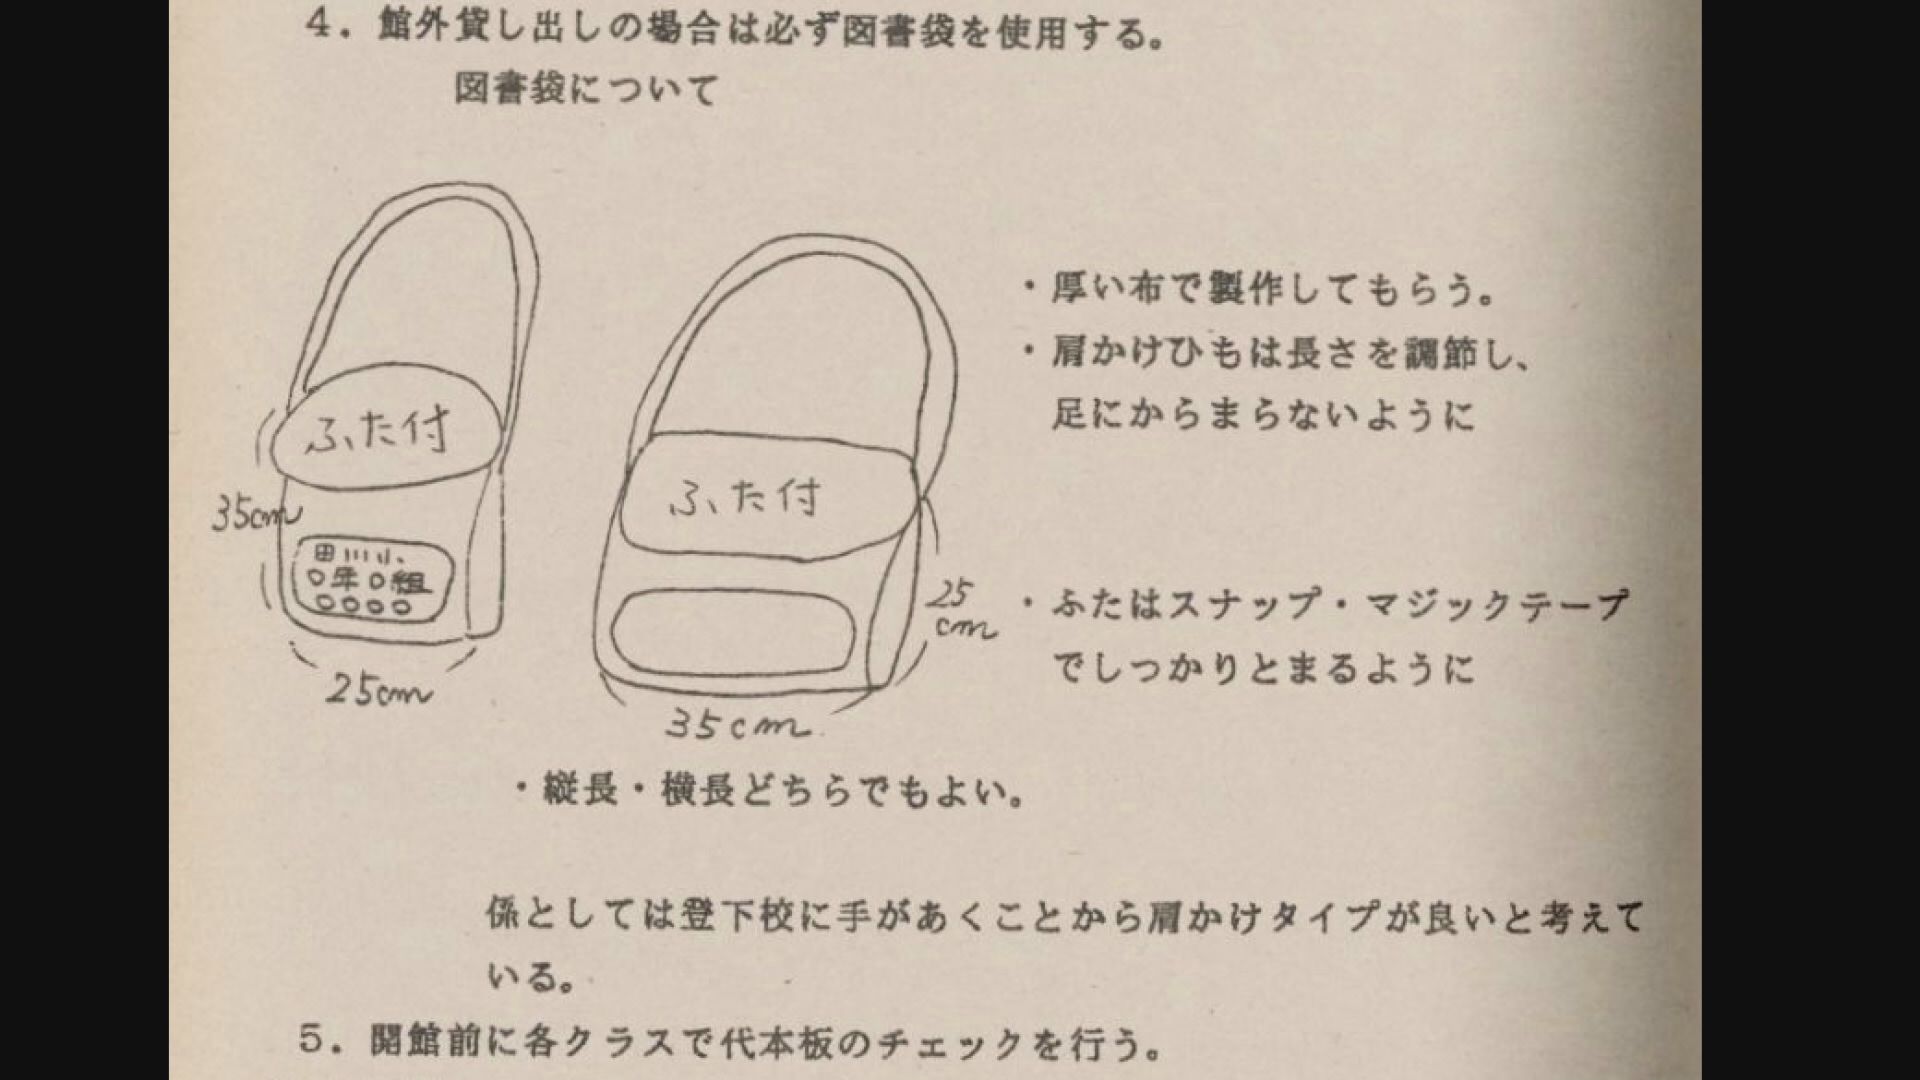 4．館外貸し出しの場合は必ず図書袋を使用する。
図書袋について
・厚い布で製作してもらう。
・肩かけひもは長さを調節し、
足にからまらないように
ふた付
ふた付
35cm
田川小
○年○組
○○○○
25cm
25
cm
35cm
・ふたはスナップ・マジックテープ
でしっかりとまるように
・縦長・横長どちらでもよい。
係としては登下校に手があくことから肩かけタイプが良いと考えて
いる。
5．開館前に各クラスで代本板のチェックを行う。